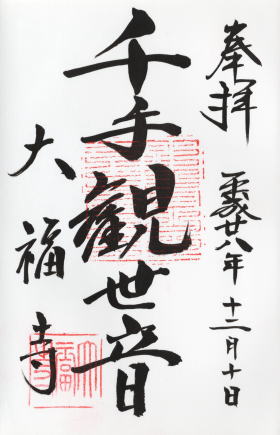 奉拝
平成廿八年 十二月十日
千手観世音
大福寺